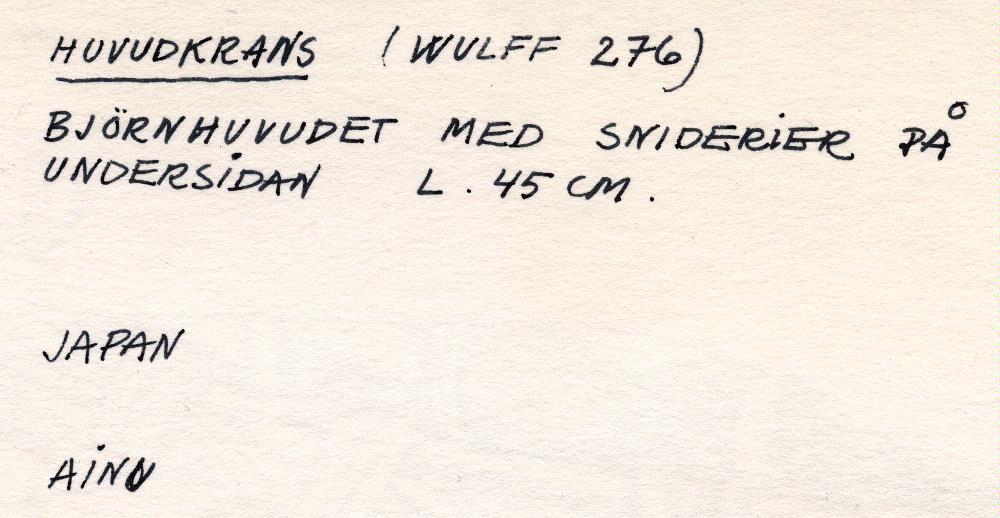 HUVUDKRANS (WULFF 276)
BJÖRNHUVUDET MED SNIDERIER PÅ
UNDERSIDAN L. 45 CM.
JAPAN
AINU